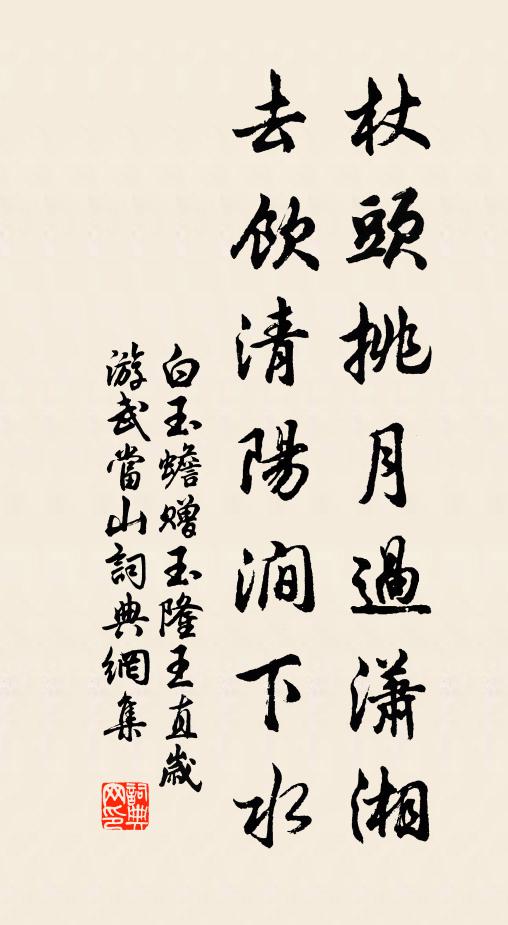 杖頭挑月過瀟湘
去飲清陽澗下水
白玉蟾贈玉隆王直歲
游武當山詞典網集
詞典网印